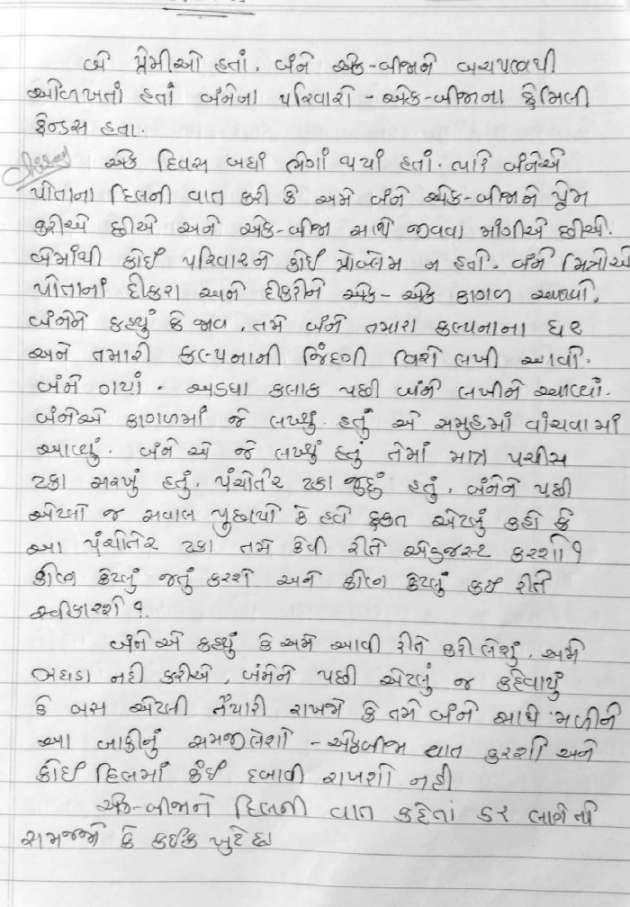 બે પ્રેમીઓ હતાં. બંને એક-બીજાને બચપણથી
ઓળખતાં હતાં બંનેના પરિવારો - એક-બીજાના ફેમિલી
ફ્રેન્ડસ હતા.
એક દિવસ બધાં ભેગાં થયાં હતાં. ત્યારે બંનેએ
પોતાના દિલની વાત કરી કે અમે બંને એક-બીજાને પ્રેમ
કરીએ છીએ અને એક-બીજા સાથે જીવવા માંગીએ છીએ.
બેમાંથી કોઈ પરિવારને કોઈ પ્રોબ્લેમ ન હતો. બંને મિત્રોએ
પોતાનાં દીકરા અને દીકરીને એક-એક કાગળ આપ્યો.
બંનેને કહ્યું કે જાવ, તમે બંને તમારા કલ્પનાના ઘર
અને તમારી કલ્પનાની જિંદગી વિશે લખી આવો.
બંને ગયાં. અડધા કલાક પછી બંને લખીને આવ્યાં.
બંનેએ કાગળમાં જે લખ્યું હતું એ સમુહમાં વાંચવામાં
આવ્યું. બંને એ જે લખ્યું હતું તેમાં માત્ર પચીસ
ટકા સરખું હતું, પંચોતેર ટકા જુદું હતું, બંનેને પછી
એટલો જ સવાલ પુછાયો કે હવે ફકત એટલું કહો કે
આ પંચોતેર ટકા તમે કેવી રીતે એડજસ્ટ કરશો ?
કોણ કેટલું જતું કરશે અને કોણ કેટલું કઈ રીતે
સ્વીકારશે ?
બંને એ કહ્યું કે અમે આવી રીતે કરી લેશું, અમે
ઝઘડા નહી કરીએ, બંનેને પછી એટલું જ કહેવાયું
કે બસ એટલી તૈયારી રાખજો કે તમે બંને સાથે મળીને
આ બાકીનું સમજી લેશો - એકબીજા વાત કરશો અને
કોઈ દિલમાં કંઈ દબાવી રાખશો નહી
એક-બીજાને દિલની વાત કહેતાં ડર લાગે તો
સમજજો કે કઈક ખુટે છે